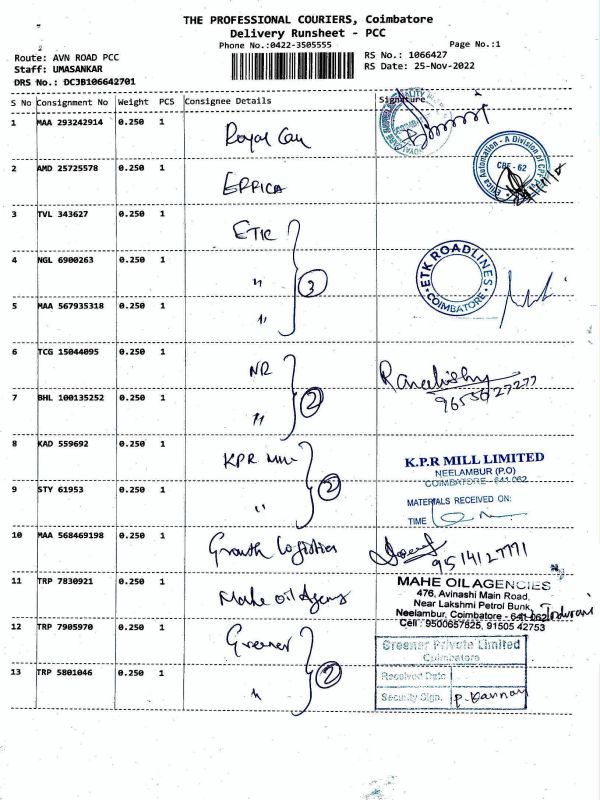 THE PROFESSIONAL COURIERS, Coimbatore
Delivery Runsheet - PCC
Phone No.:0422-3505555
Page No.:1
Route: AVN ROAD PCC
RS No.: 1066427
Staff: UMASANKAR
RS Date: 25-Nov-2022
DRS No.: DCJB106642701
S No Consignment No Weight PCS Consignee Details Signature
1 MAA 293242914 0.250 1 Royal Care
2 AMD 25725578 0.250 1 EPPICA
CBE - 62
3 TVL 343627 0.250 1 ETK
4 NGL 6900263 0.250 1 " 3
ETK ROADLINES COIMBATORE
5 MAA 567935318 0.250 1 "
6 TCG 15044095 0.250 1 NR
7 BHL 100135252 0.250 1 " 2
8 KAD 559692 0.250 1 KPR Mill
K.P.R MILL LIMITED
NEELAMBUR (P.O)
COIMBATORE - 641 062
9 STY 61953 0.250 1 " 2
MATERIALS RECEIVED ON:
TIME
10 MAA 568469198 0.250 1 Growth Logistics
9514127771
11 TRP 7830921 0.250 1 Mahe oil Agency
MAHE OIL AGENCIES
476, Avinashi Main Road,
Near Lakshmi Petrol Bunk,
Neelambur, Coimbatore - 641 062
Cell : 9500657825, 91505 42753
12 TRP 7905970 0.250 1 Greener
Greener Private Limited
Coimbatore
13 TRP 5801046 0.250 1 " 2
Received Date
Security Sign. P. Kannan